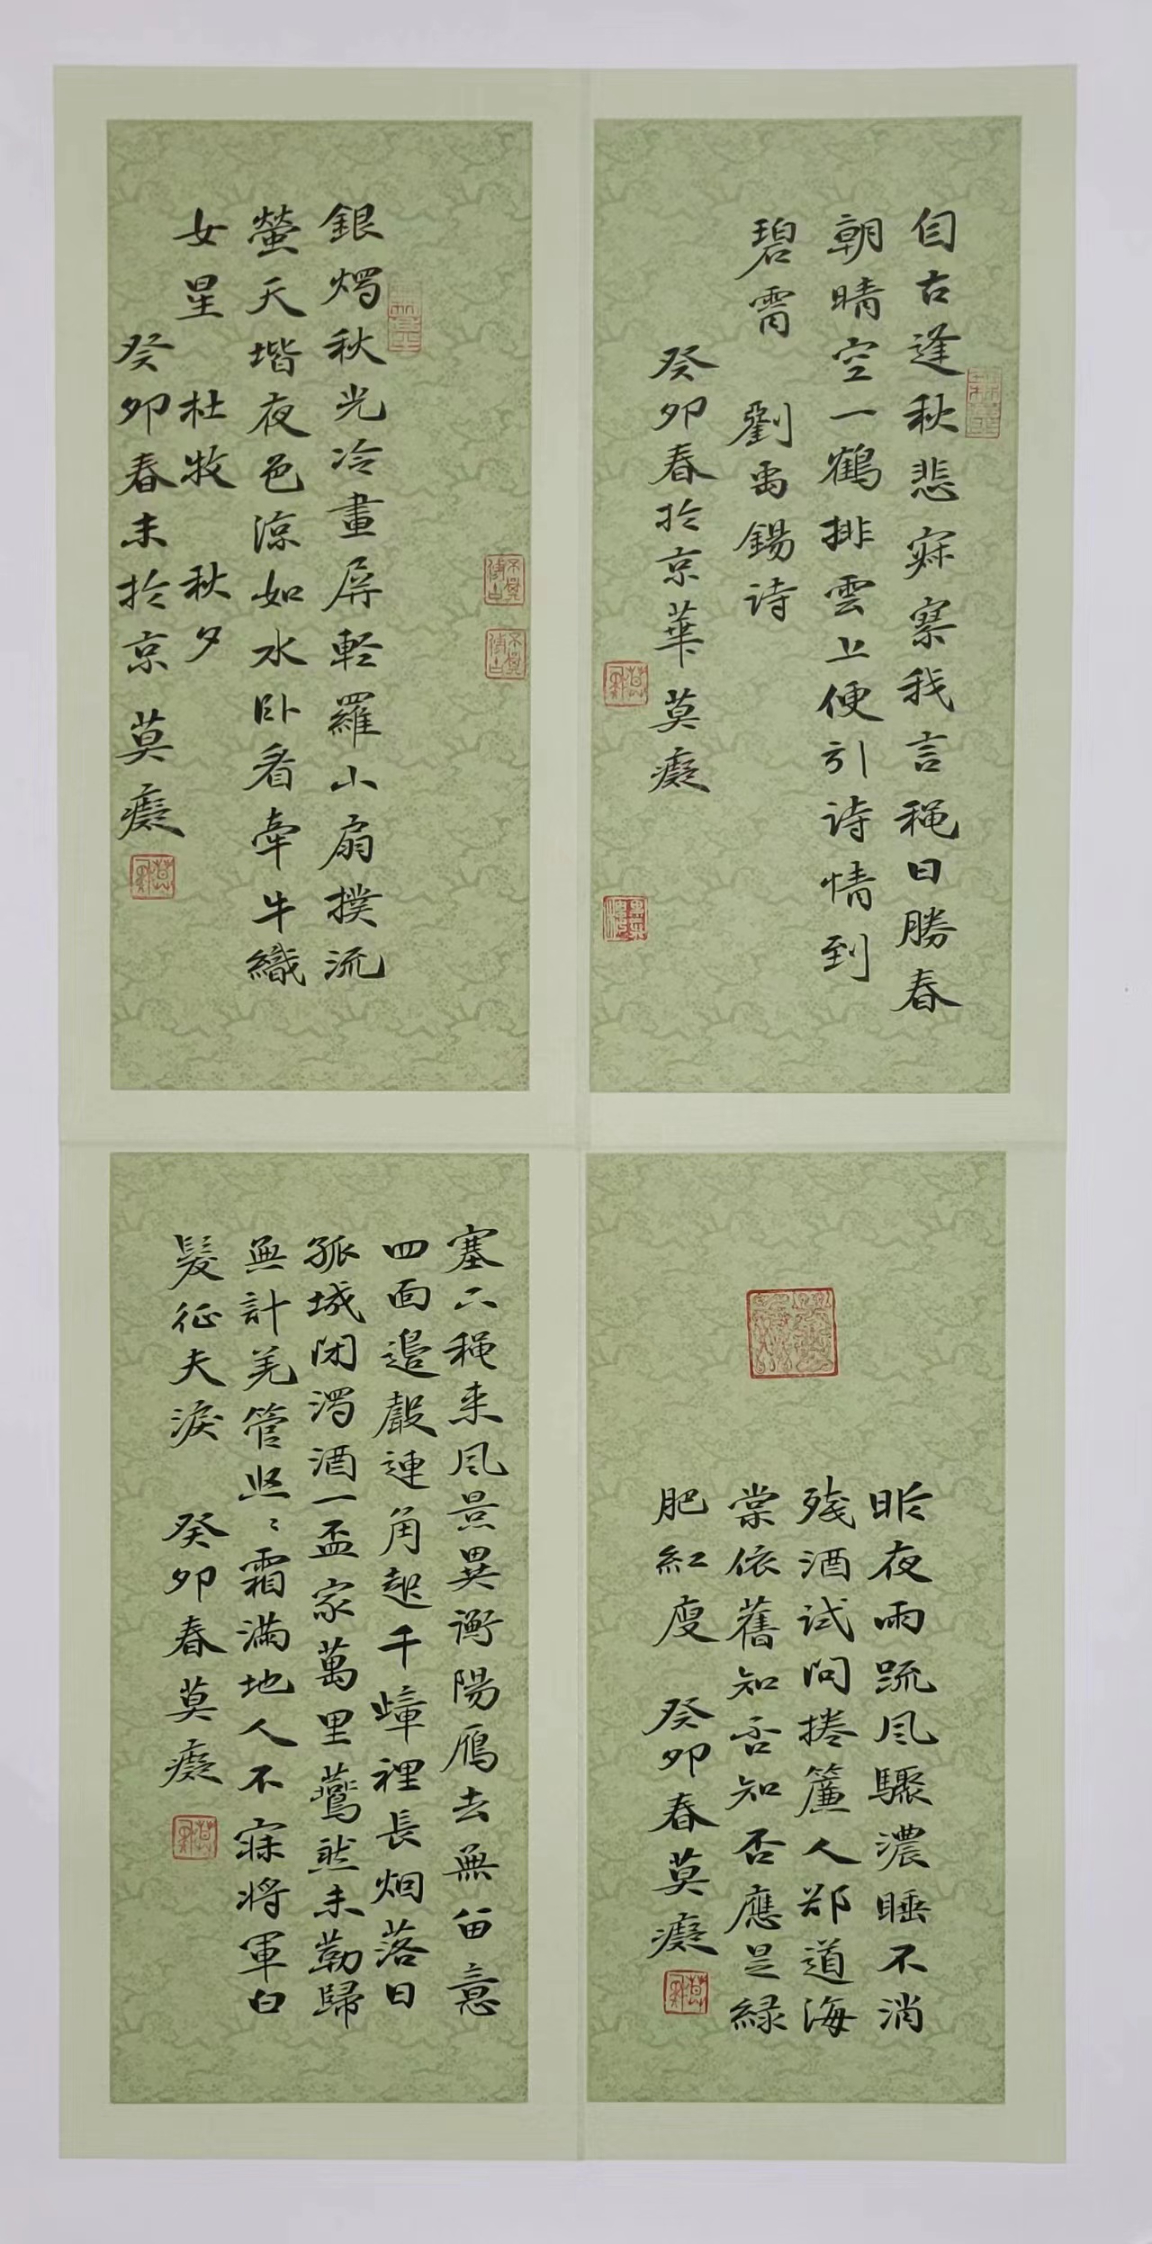 自古逢秋悲寂寥我言穐日勝春
朝晴空一鶴排雲上便引詩情到
碧霄 劉禹錫詩
癸卯春於京華 莫癡
銀燭秋光冷畫屏輕羅小扇撲流
螢天堦夜色涼如水卧看牽牛織
女星 杜牧 秋夕
癸卯春末於京 莫癡
昨夜雨疏風驟濃睡不消
殘酒試問捲簾人郤道海
棠依舊知否知否應是緑
肥紅瘦 癸卯春莫癡
塞下穐来風景異衡陽鴈去無留意
四面邊聲連角起千嶂裡長烟落日
孤城閉濁酒一盃家萬里鷰然未勒歸
無計羌管悠〻霜滿地人不寐將軍白
髮征夫淚 癸卯春莫癡